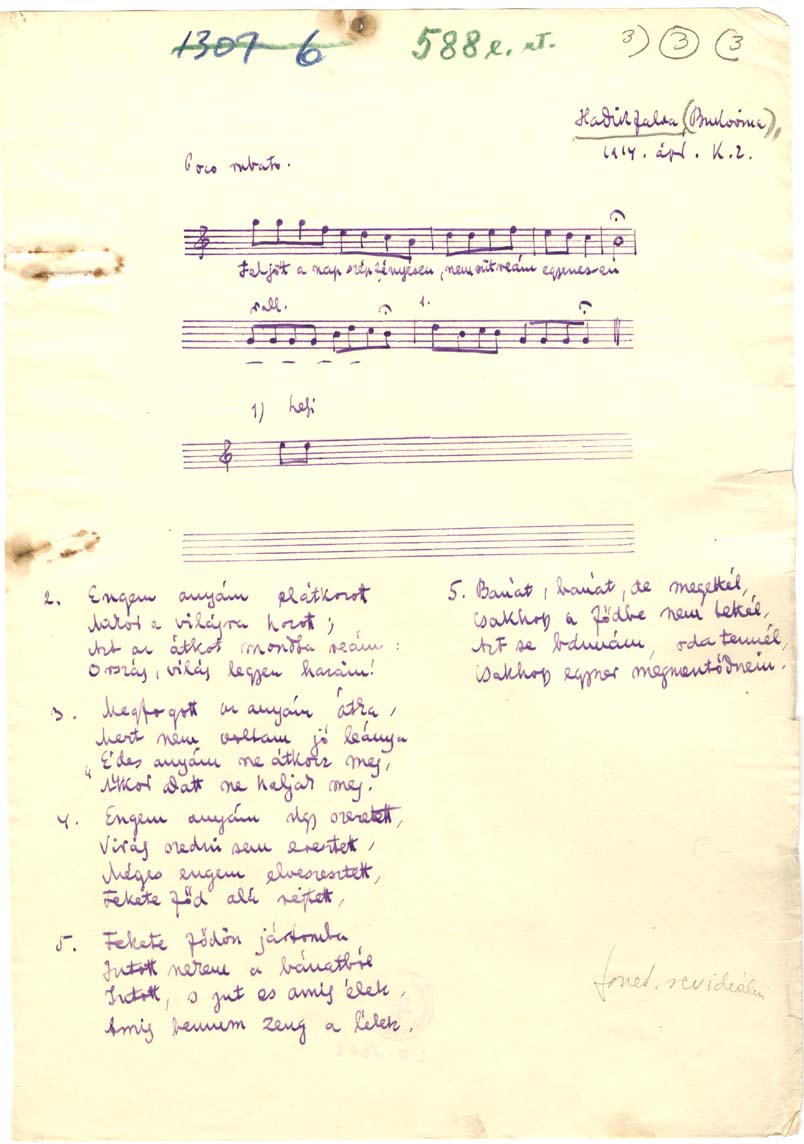 1309 6 588 e. rt. 3) 3 (3
Hadikfalva (Bukovina),
1914. ápr. K. Z.
Poco rubato.
Feljött a nap szép fényesen, nem süt reám egyenessen
rall. 1.
1)
2. Engem anyám elátkozott
Mikor a világra hozott;
Azt az átkot mondta reám:
Ország, világ legyen hazám!
3. Megfogott az anyám átka,
Mert nem voltam jó leánya
"Édes anyám ne átkozz meg,
Átkod alatt ne haljak meg.
4. Engem anyám úgy szeretett,
Virág szedni sem eresztett,
Méges engem elveszesztett,
Fekete főd alá rejtett,
5. Fekete födön jártomba
Jutott nekem a bánatból
Jutott, s jut es amig élek,
Amig bennem zeng a lélek.
5. Bánat, bánat, de megettél,
Csakhogy a födbe nem tettél,
Azt se bánnám, oda tennél,
Csakhogy egyszer megmentődném.
fonet. revideálni